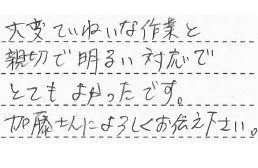 大変ていねいな作業と
親切で明るい対応で
とてもよかったです。
加藤さんによろしくお伝え下さい。